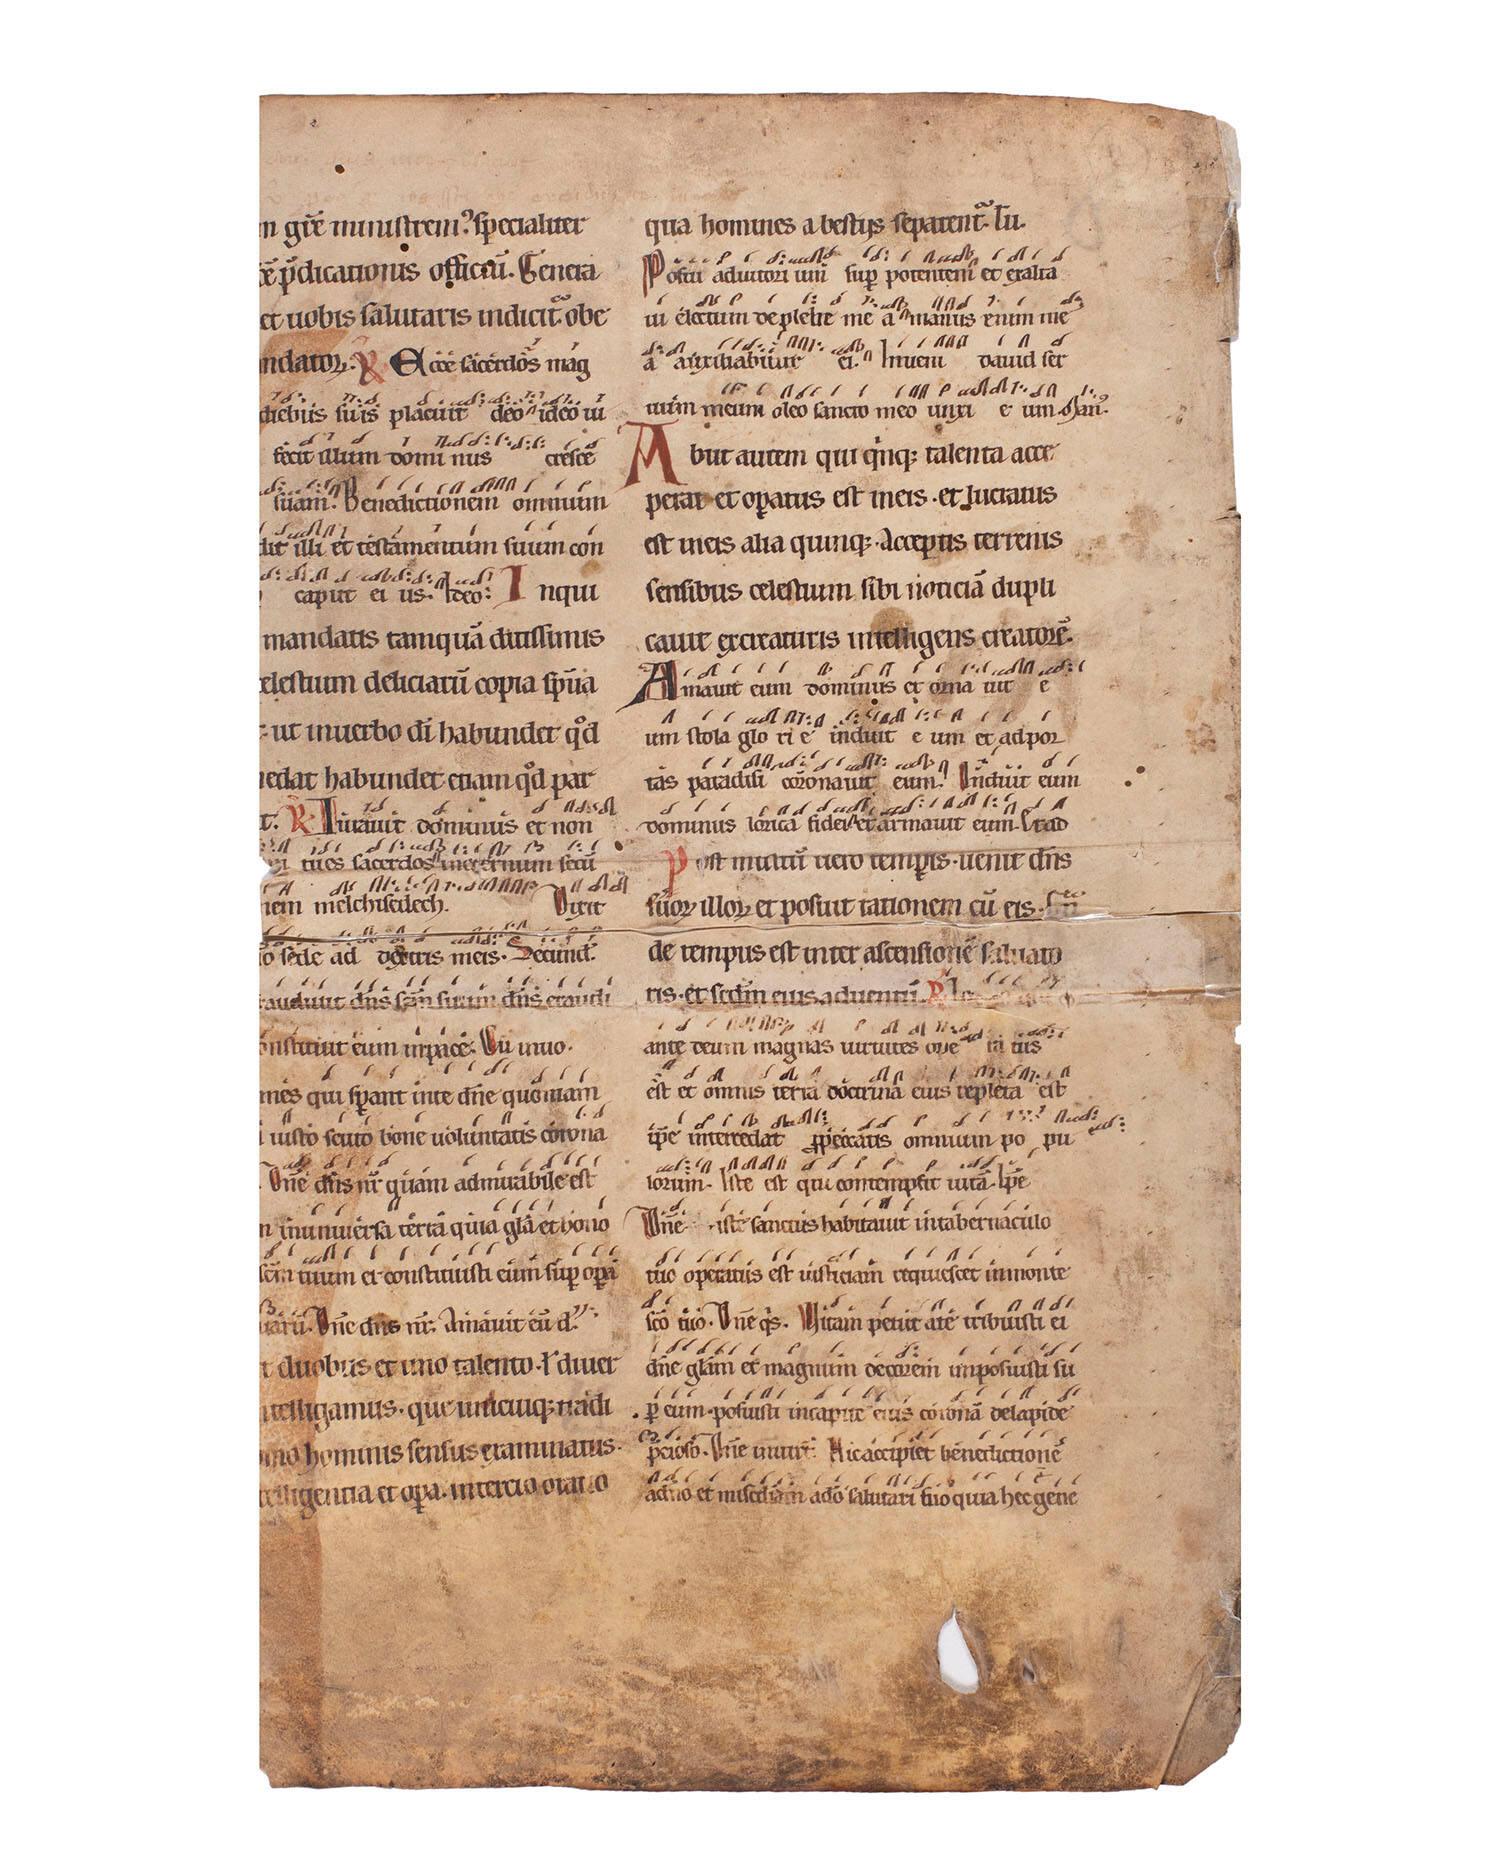 n gr̄e ministrem? specialiter
ce p̄dicationis officiū. Genera
et uobis salutaris indicit̄ obe
ndator. R̷ Ecce sacerdos mag
diebus suis placuit deo ideo iu
fecit illum domi nus cresce
suam. Benedictionem omnium
dit illi et testamentum suum con
caput ei us. Ideo. Inqui
mandatis tamquā ditissimus
elestium deliciarū copia sp̄ua
ut inuerbo dī habundet qd̊
nedat habundet etiam qd̊ par
t. R̷ Iurauit dominus et non
tu es sacerdos ineternum secū
nem melchisedech. Dixit
o sede ad dextris meis. Secund.
raudiuit dn̄s sc̄m suum dn̄s exaudi
onstituit eum inpace. Cū inuo.
mes qui sꝑant inte dn̄e quoniam
iusto scuto bone uoluntatis corona
Dn̄e dn̄s nr̄ quam admirabile est
n inuniuersa terra quia gl̄a et hono
sc̄m tuum et constituisti eum suꝑ oꝑa
uarū. Dn̄e dn̄s nr̄. Amauit eū d.
t duobus et uno talento. ł diuer
ntelligamus. que unicuiqꝫ tradi
mo hominis sensus examinatus.
telligentia et oꝑa. intercio oratio
qua homines a bestijs separent̄. Iu.
Posui adiutori um suꝑ potentem et exalta
ui electum de plebe me a manus enim me
a auxiliabitur ei. Inueni dauid ser
uum meum oleo sancto meo unxi e um. Man̄.
Abiit autem qui qͥnqꝫ talenta acce
perat et oꝑatus est in eis. et lucratus
est in eis alia quinqꝫ. Acceptis terrenis
sensibus celestium sibi noticiā dupli
cauit ex creaturis intelligens creatorē.
Amauit eum dominus et orna uit e
um stola glo ri e induit e um et ad por
tas paradisi coronauit eum. Induit eum
dominus lorica fidei et armauit eum. Et ad
Post multū uero temporis. uenit dn̄s
suoꝝ illoꝝ et posuit rationem cū eis.
de tempus est inter ascensionē saluato
ris. et sec̄dm eius aduentū. R̷
ante deum magnas uirtutes ope ra tus
est et omnis terra doctrina eius repleta est
ip̄e intercedat ꝓ peccatis omnium po pu
lorum. Iste est qui contempsit uitā. Ip̄e
Dn̄e iste sanctus habitauit intabernaculo
tuo operatus est iusticiam requiescet inmonte
sc̄o tuo. Dn̄e qͥs. Uitam petiit a te tribuisti ei
dn̄e gl̄am et magnum decorem imposuisti su
ꝑ eum. posuisti incapite eius coronā delapide
p̄cioso. Dn̄e inuirt̄. Hic accipiet benedictionē
adn̄o et misc̄diam adō salutari suo quia hec gene